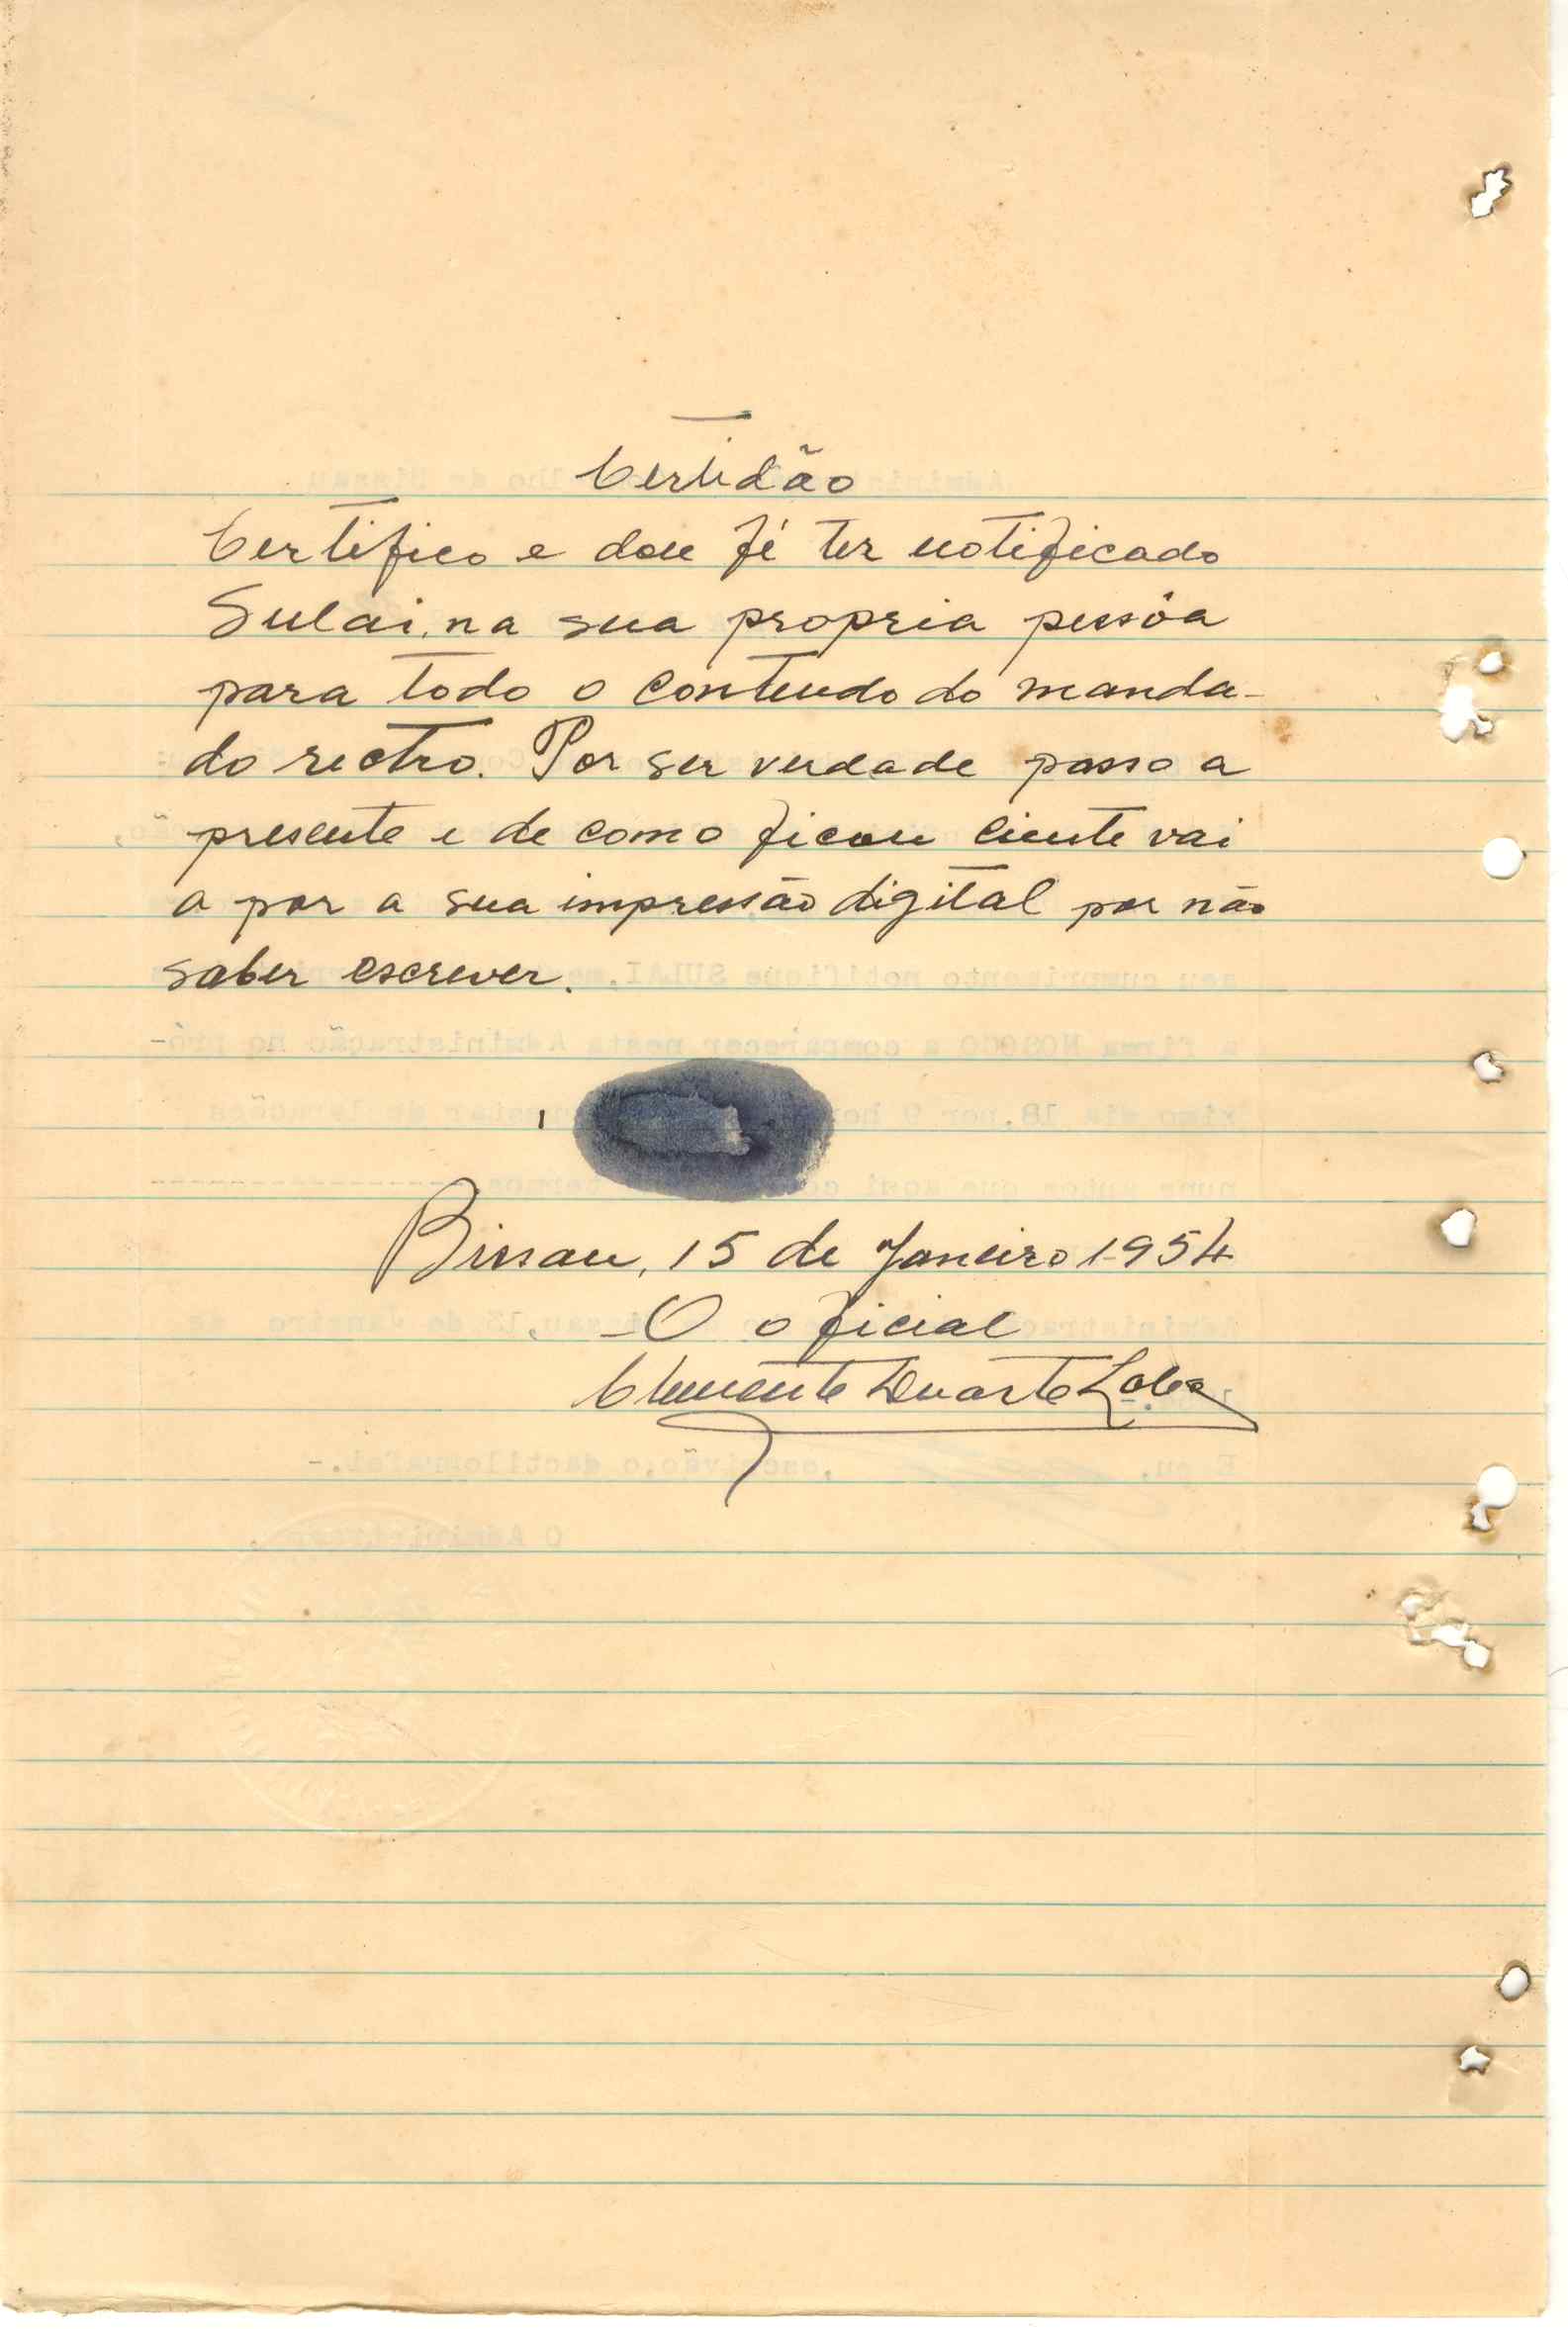 Certidão
Certifico e dou fé ter notificado
Sulai, na sua propria pessôa
para todo o conteudo do manda-
do rectro. Por ser verdade passo a
presente e de como ficou ciente vai
a por a sua impressão digital por não
saber escrever.
Bissau, 15 de Janeiro 1954
O oficial
Clemente Duarte